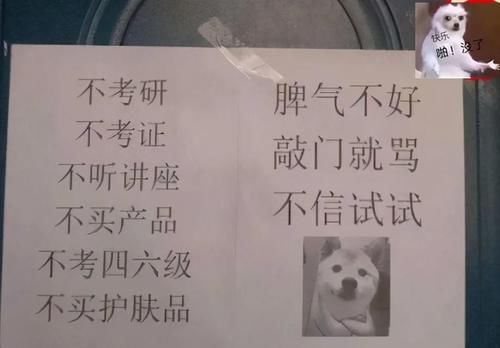 不考研
不考证
不听讲座
不买产品
不考四六级
不买护肤品
脾气不好
敲门就骂
不信试试
快乐
啪！没了